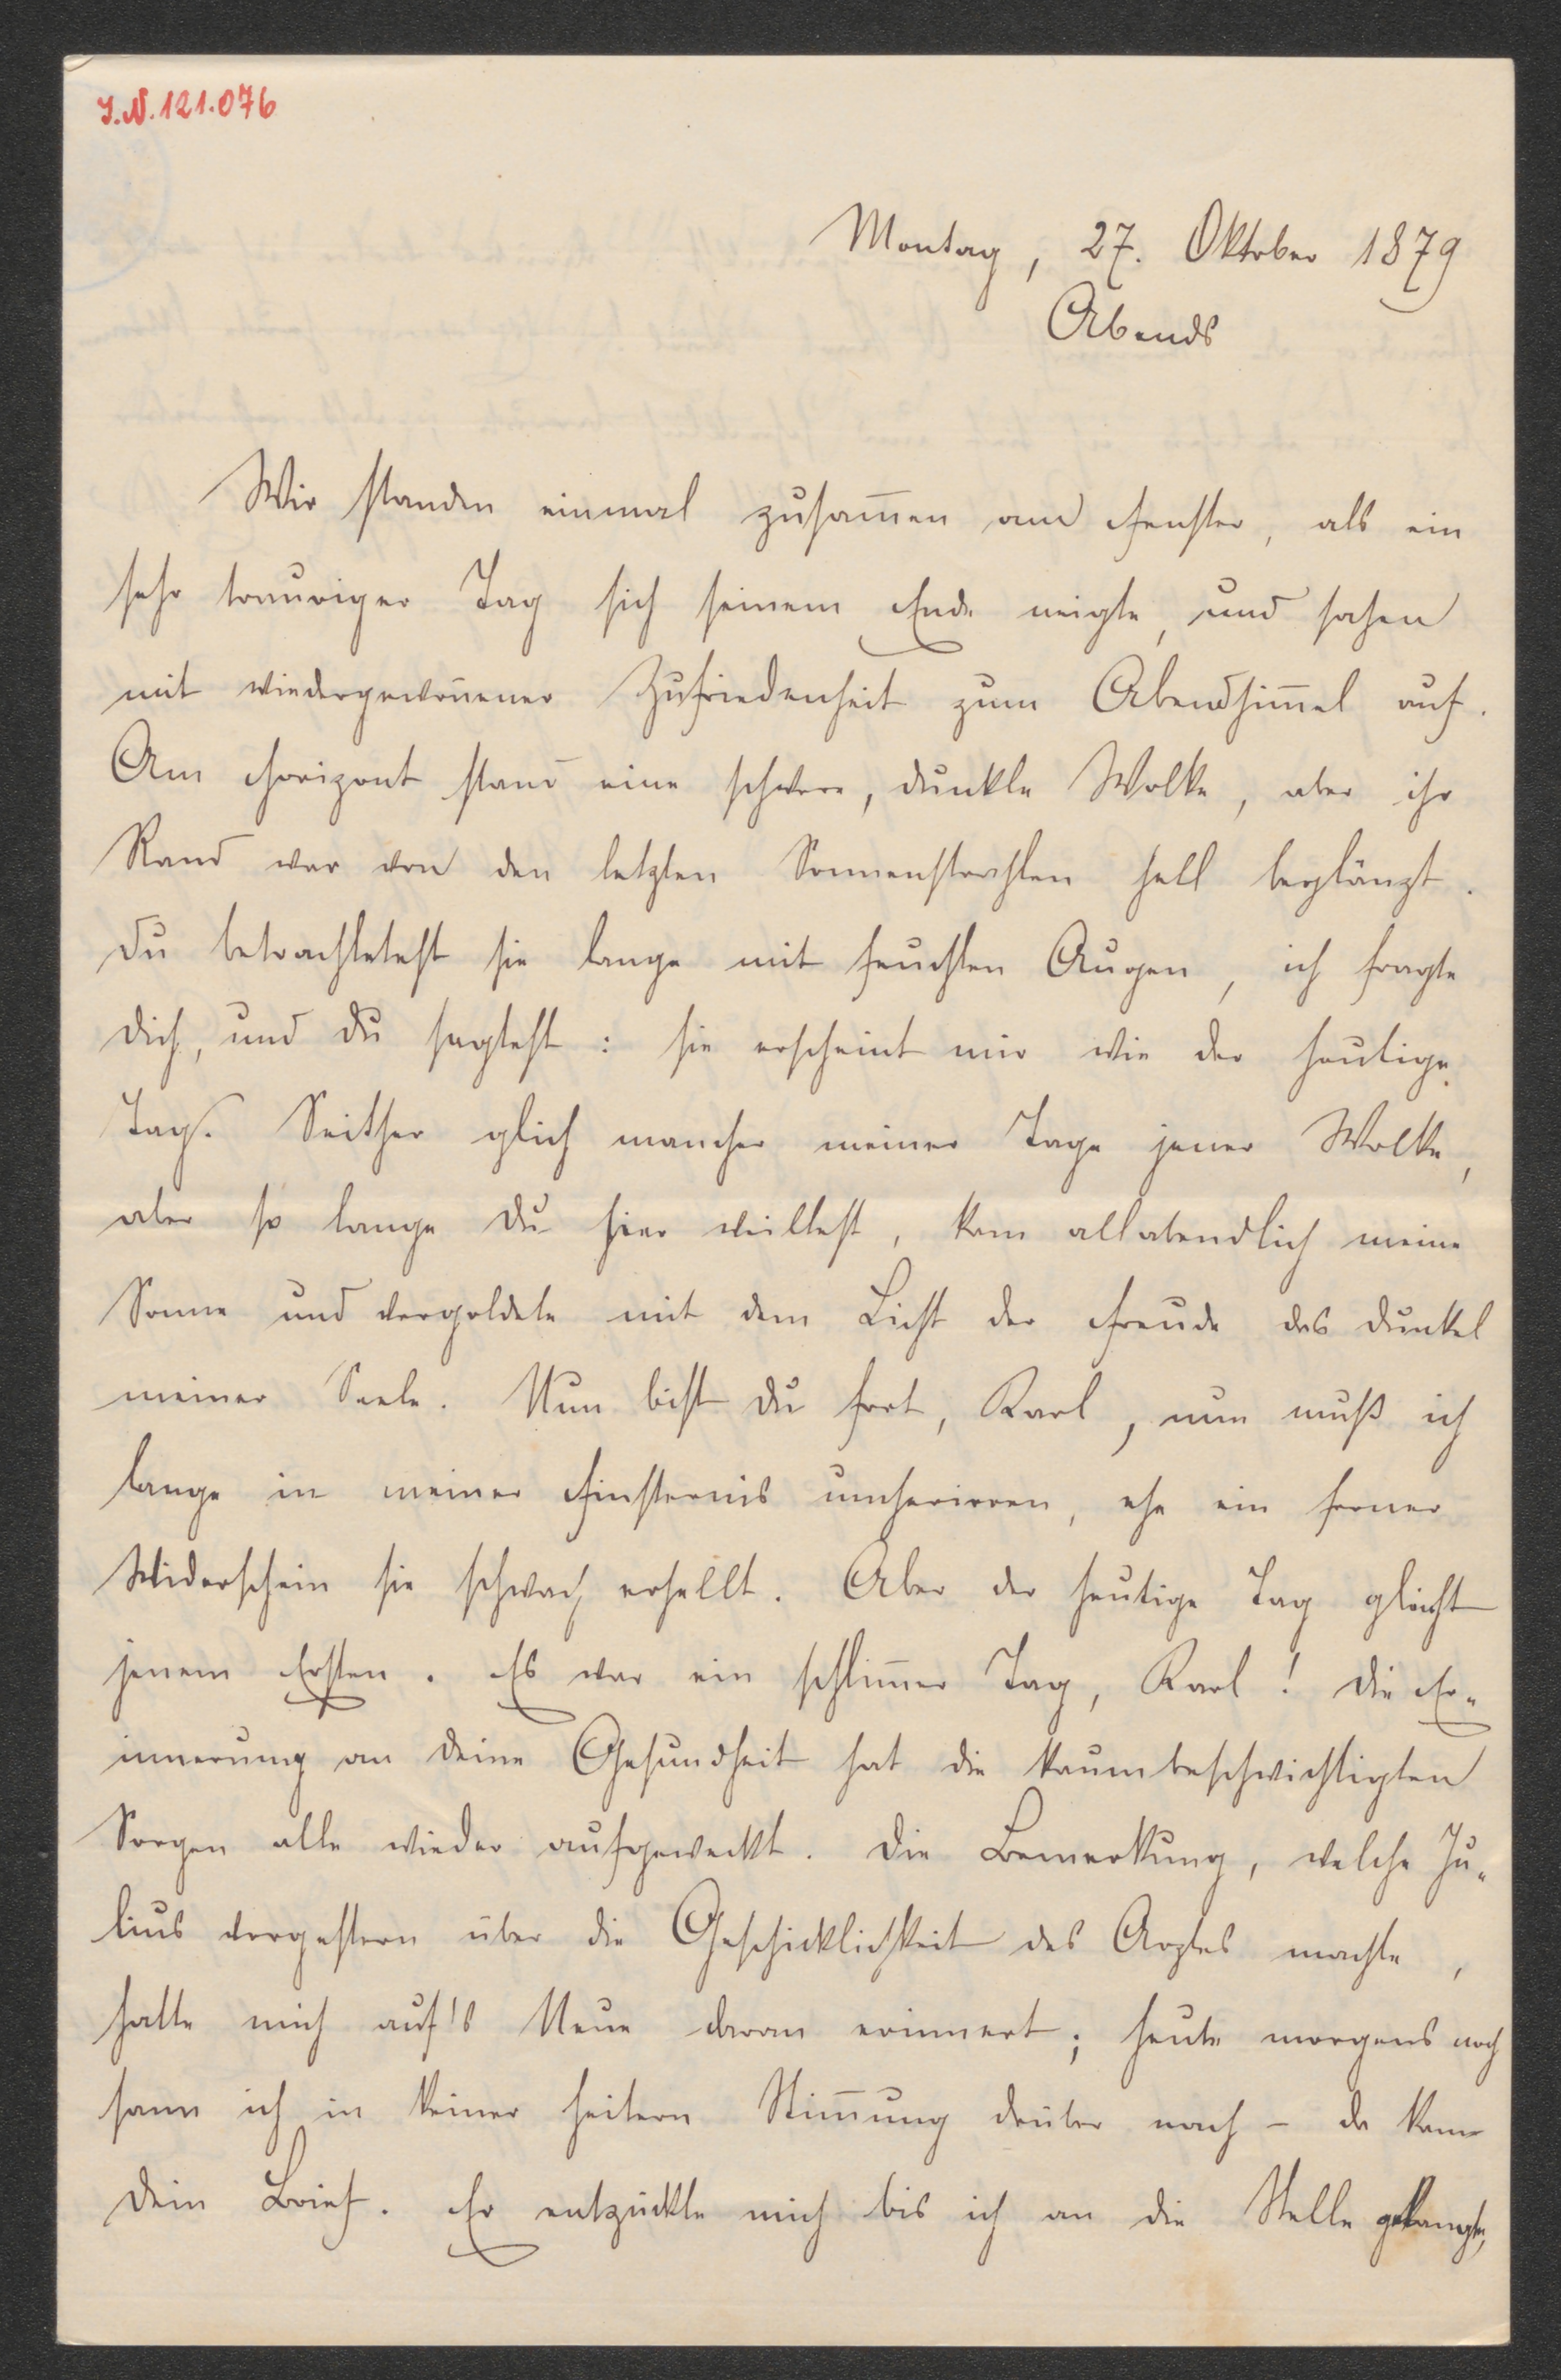 J.N. 121.076
Montag, 27. Oktober 1879
Abends
Wir standen einmal zusam̄en am Fenster, als ein
sehr trauriger Tag sich seinem Ende neigte, und sahen
mit wiedergewon̄ener Zufriedenheit zum Abendhim̄el auf.
Am Horizont stand eine schwere, dunkle Wolke, aber ihr
Rand war von den letzten Sonnenstrahlen hell beglänzt.
Du betrachtetest sie lange mit feuchten Augen, ich fragte
Dich, und Du sagtest: sie erscheint mir wie der heutige
Tag. Seither glich mancher meiner Tage jener Wolke,
aber so lange Du hier weiltest, kam allabendlich meine
Sonne und vergoldete mit dem Licht der Freude das Dunkel
meiner Seele. Nun bist Du fort, Karl, nun muß ich
lange in meiner Finsternis umherirren, ehe ein ferner
Widerschein sie schwach erhellt. Aber der heutige Tag gleicht
jenem Ersten. Es war ein schlim̄er Tag, Karl! Die Er-
innerung an Deine Gesundheit hat die kaumbeschwichtigten
Sorgen alle wieder aufgeweckt. Die Bemerkung, welche Ju-
lius vorgestern über die Geschicklichkeit des Arztes machte,
hatte mich auf's Neue daran erinnert; heute morgens noch
sann ich in keiner heitern Stim̄ung drüber nach – da kam
Dein Brief. Er entzückte mich bis ich an die Stelle gelangte,